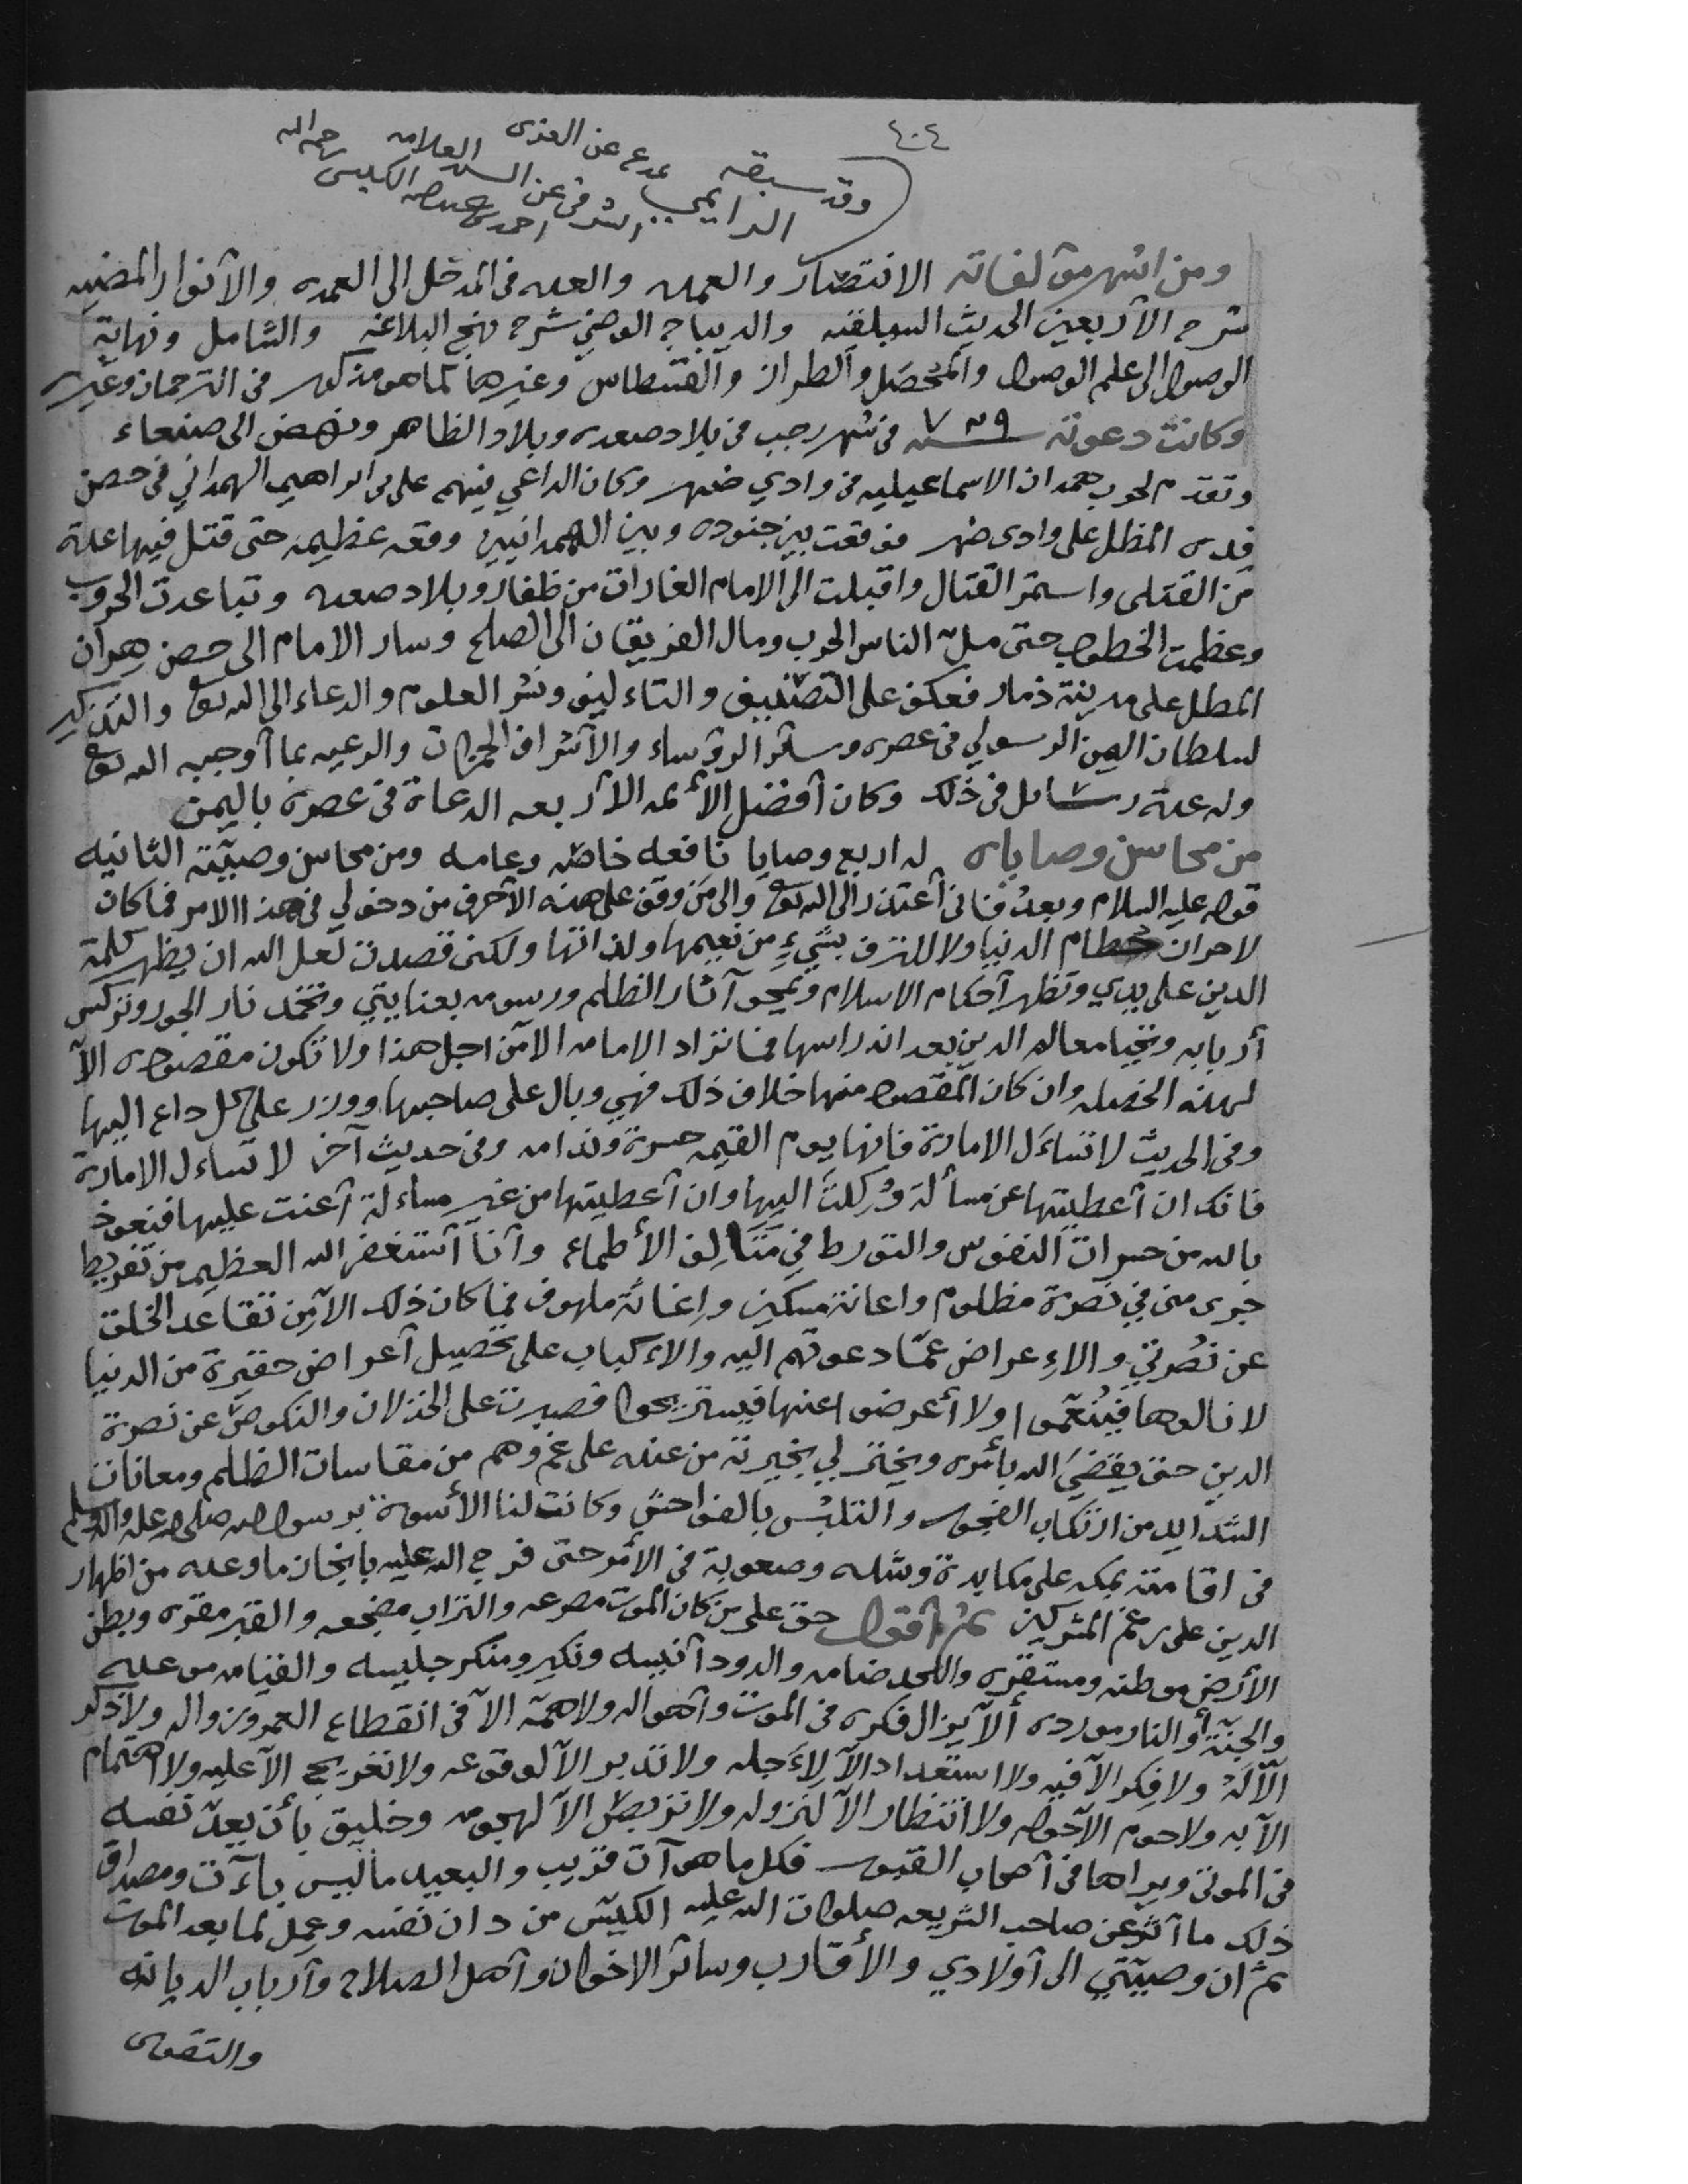 ٤٠٤
وقد سبقه
ومن اشهر مؤلفاته الانتصار والعمده والعده في المدخل الى العمده والأنوار المضيه
شرح الأربعين الحديث السيلقيه والديباج الوضي شرح نهج البلاغه والشامل ونهاية
الوصول الى علم الوصول والمحصّل والطراز والقسطاس وغيرها كما هو مذكور في الترجمان وغيره
وكانت دعوته ٧٢٩ سنه في شهر رجب في بلاد صعده وبلاد الظاهر ونهض الى صنعاء
وتقدم لحرب همدان الاسماعيليه في وادي ضهر وكان الداعي فيهم علي بن ابراهيم الهمداني في حصن
فده المطل على وادى ضهر فوقعت بين جنوده وبين الهمدانيين وقعه عظيمه حتى قتل فيها عدة
من القتلى واستمر القتال واقبلت الى الامام الغارات من ظفار وبلاد صعده وتباعدت الحروب
وعظمت الخطوب حتى ملّ الناس الحرب ومال الفريقان الى الصلح وسار الامام الى حصن هران
المطل على مدينة ذمار فعكف على التصنيف والتاءليف ونشر العلوم والدعاء الى الله تع والتذكير
لسلطان اليمن الرسولي في عصره وسائر الرؤساء والأشراف الحمزات والرعيه بما أوجبه الله تع
وله عدة رسائل في ذلك وكان أفضل الأئمه الأربعه الدعاة في عصره باليمن
من محاسن وصاياه له اربع وصايا نافعه خاصه وعامه ومن محاسن وصيّته الثانيه
قوله عليه السلام وبعدُ فاني أعتذر الى الله تع والى مَن وقف على هذه الأحرف من دخولي في هذا الامر فما كان
لاحراز حُطام الدنيا ولا للترف بشيءٍ من نعيمها ولذاتها ولكني قصدت لعل الله ان يظهر كلمة
الدين على يدي وتظهر أحكام الاسلام وتمحو آثار الظلم ورسومه بعنايتي وتخمد نار الجور وتركس
أربابه وتحيا معالم الدين بعد اندراسها فما تراد الامامه الا من اجل هذا ولا تكون مقصوده الّا
لهذه الخصله وان كان المقصود منها خلاف ذلك فهي وبال على صاحبها ووزر على كل داع اليها
وفي الحديث لا تساءَل الامارة فانها يوم القيمه حسرة وندامه وفي حديث آخر لا تساءل الامارة
فانك ان أعطيتها عن مسألة وُكِلتَ اليها وان أعطيتها من غير مساءلة أعنت عليها فنعوذ
بالله من حسرات النفوس والتورط في مَتَالِف الأطماع وأنا أستغفر الله العظيم من تفريط
جرى مني في نصرة مظلوم واعانة مسكين وإغاثة ملهوف فما كان ذلك الا من تقاعد الخلق
عن نُصرتي والاِعراض عمّا دعوتهم اليه والاءكباب على تحصيل أعراض حقيرة من الدنيا
لا نالوها فيُنعَّموا ولا أعرضوا عنها فيستريحوا فصبرت على الخذلان والنكوص عن نصرة
الدين حتى يقضيَ الله بأمره ويختر لي بخيرته من عنده على غم وهم من مقاسات الظلم ومعانات
الشدايد من ارتكاب الفجور والتلبّس بالفواحش وكانت لنا الأسوة برسول الله صلى الله عليه واله وسلم
في اقامته بمكه على مكابدة وشده وصعوبة في الأمر حتى فرج الله عليه بانجاز ما وعده من اظهار
الدين على رغم المشركين ثم أقول حق على من كان الموت مصرعه والتراب مضجعه والقبر مقره وبطن
الأرض موطنه ومستقره واللحد ضامه والدود أنيسه ونكير ومنكر جليسه والقيامه موعده
والجنّة أو النار مورده ألّا يزال فكره في الموت وأهواله ولا همّه الا في انقطاع العمر وزواله ولا ذكر
الّا لَهُ ولا فِكر الا فيه ولا استعداد الا لِأَجله ولا تدبر الا لوقوعه ولا تعريج الا عليه ولا اهتمام
الا به ولا حوم الا حوله ولا انتظار الا لنزوله ولا تربص الا لهجومه وخليق بأن يعدّ نفسه
في الموتى ويراها في أصحاب القبور فكل ما هو آت قريب والبعيد ما ليس بآءت ومصداق
ذلك ما أثر عن صاحب الشريعه صلوات الله عليه الكيّس من دان نفسه وعمِل لما بعد الموت
ثم ان وصيّتي الى أولادي والأقارب وسائر الاخوان وأهل الصلاح وأرباب الديانه
والتقوى